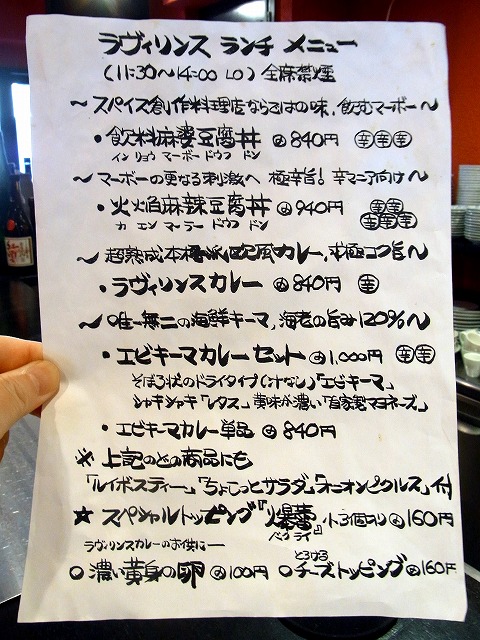 ラヴィリンス ランチ メニュー
(11:30〜14:00 LO) 全席禁煙
〜スパイス創作料理店ならではの味、飲むマーボー〜
・飲料麻婆豆腐丼 @840円 辛辛辛
インリョウ マーボー ドウフ ドン
〜マーボーの更なる刺激へ 極辛旨! 辛マニア向け〜
・火焔麻辣豆腐丼 @940円 辛辛辛辛辛
カ エン マーラー ドウフ ドン
〜超熟成本格派欧風カレー、究極コク旨〜
・ラヴィリンスカレー @840円 辛
〜唯一無二の海鮮キーマ、海老の旨み120%〜
・エビキーマカレーセット @1,000円 辛辛
そぼろ状のドライタイプ(汁なし)「エビキーマ」
シャキシャキ「レタス」美味が濃い「自家製マヨネーズ」
・エビキーマカレー単品 @840円
※上記のどの商品にも
「ルイボスティー」「ちょこっとサラダ」「オニオンピクルス」付
★スペシャルトッピング『爆蕾』小3個入り @160円
バクライ
ラヴィリンスカレーのお供に—
○濃い黄身の卵 @100円 ○チーズトッピング @160円
とろける